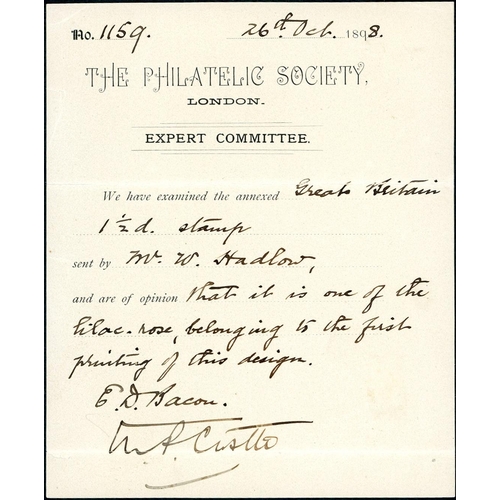 No. 1159. 26th Oct. 1898.
THE PHILATELIC SOCIETY,
LONDON.
EXPERT COMMITTEE.
We have examined the annexed Great Britain
1½d. stamp
sent by Mr. W. Hadlow,
and are of opinion that it is one of the
lilac-rose, belonging to the first
printing of this design.
E. D. Bacon.
M. P. Castle